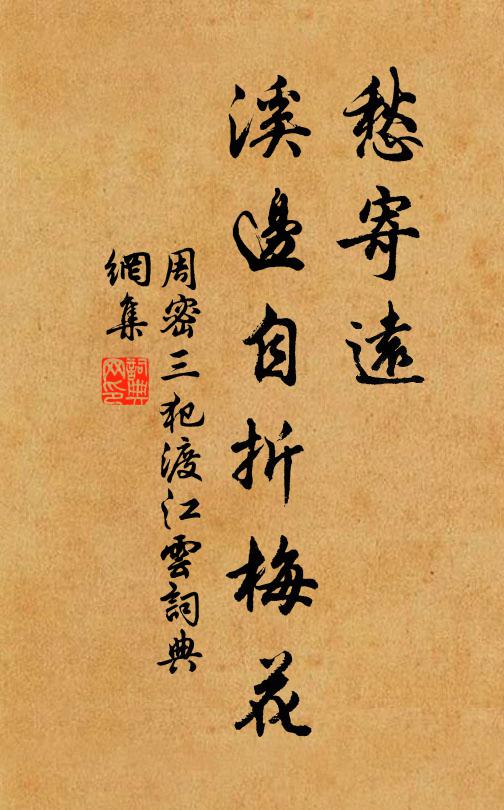 愁寄遠
溪邊自折梅花
周密三犯渡江雲詞典
網集
詞典
网印